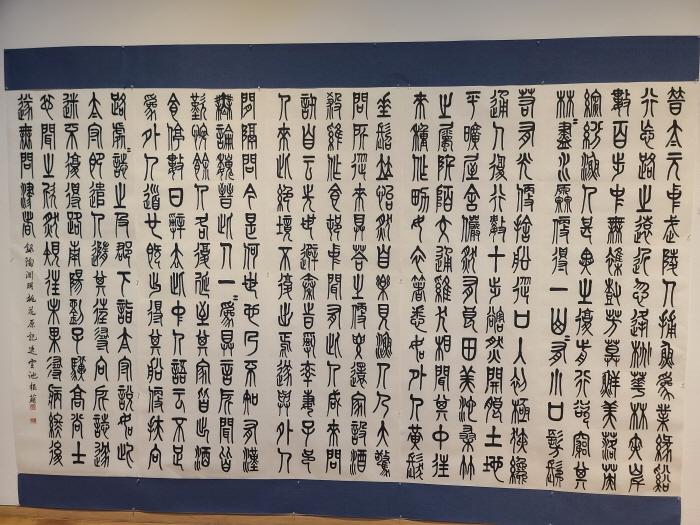 晉太中武陵人捕魚為業緣谿
行忘路之遠近忽逢桃華林夾岸
數百步中無雜樹芳草鮮美落英
繽紛漁人甚異之復前行欲窮其
林〻盡水源便得一山〻有小口髣髴
若有光便捨船從口入初極狹纔
通人復行數十步豁然開朗土地
平曠屋舍儼然有良田美池桑竹
之屬阡陌交通雞犬相聞其中往
來種作男女衣著悉如外人黃髮
垂髫並怡然自樂見漁人乃大驚
問所從來具答之便要還家設酒
殺雞作食村中聞有此人咸來問
訊自云先世避秦時亂率妻子邑
人來此絕境不復出焉遂與外人
間隔問今是何世乃不知有漢
無論魏晉此人一〻為具言所聞皆
歎惋餘人各復延至其家皆出酒
食停數日辭去此中人語云不足
為外人道也既出得其船便扶向
路處〻誌之及郡下詣太守說如此
太守即遣人隨其往尋向所誌遂
迷不復得路南陽劉子驥高尚士
也聞之欣然規往未果尋病終後
遂無問津者
錄陶淵明桃花原記